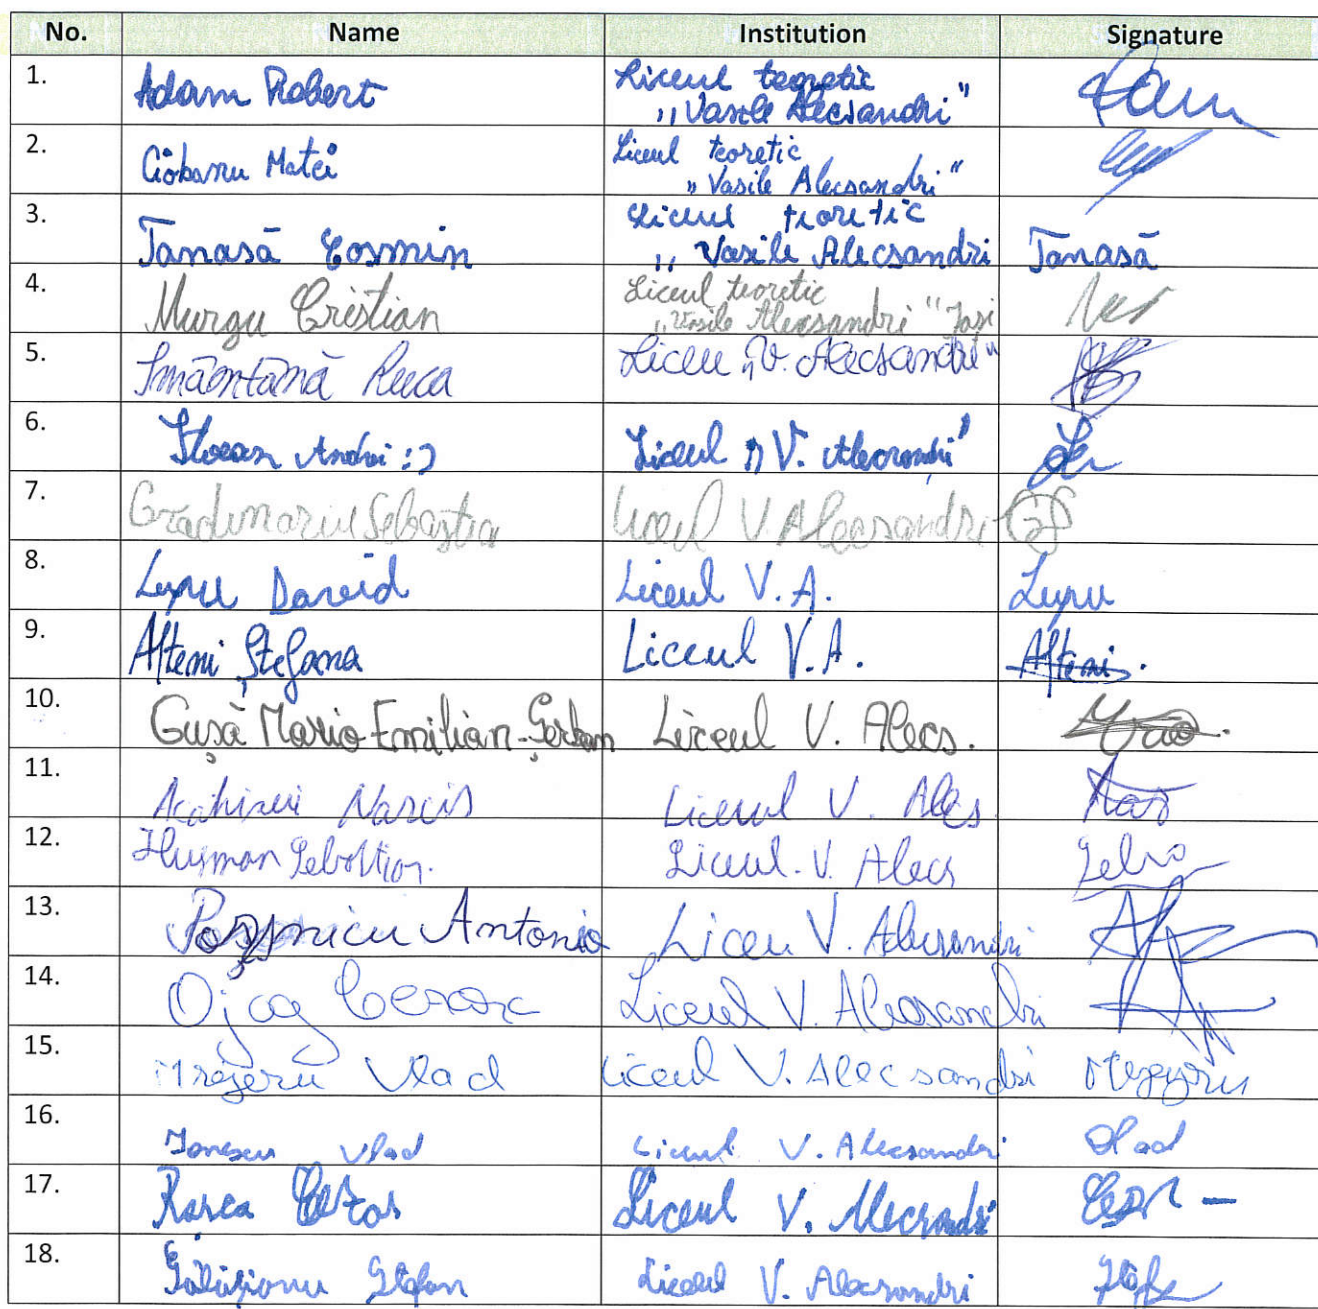 No. Name Institution Signature
1. Adam Robert Liceul teoretic
„Vasile Alecsandri"
2. Ciobanu Matei Liceul teoretic
„Vasile Alecsandri"
3. Tanasă Cosmin Liceul teoretic
„Vasile Alecsandri Tanasă
4. Murgu Cristian Liceul teoretic
„Vasile Alecsandri" Iași
5. Smântână Liceu „V. Alecsandri"
6. Stoean Andrei :) Liceul „V. Alecsandri"
7. Gradinariu Sebastia Liceul V. Alecsandri GS
8. Lupu David Liceul V.A. Lupu
9. Afteni Ștefana Liceul V.A. Afteni.
10. Gușă Mario-Emilian-Șerban Liceul V. Alecs.
11. Narcis Liceul V. Alecs
12. Husman Liceul V. Alecs Sebia
13. Antonio Liceu V. Alecsandri
14. Ojog Cezar Liceul V. Alecsandri
15. Mrejeru Vlad Liceul V. Alecsandri
16. Ionescu Vlad Liceul V. Alecsandri Vlad
17. Rarea Cezar Liceul V. Alecsandri
18. Ștefan Liceul V. Alecsandri